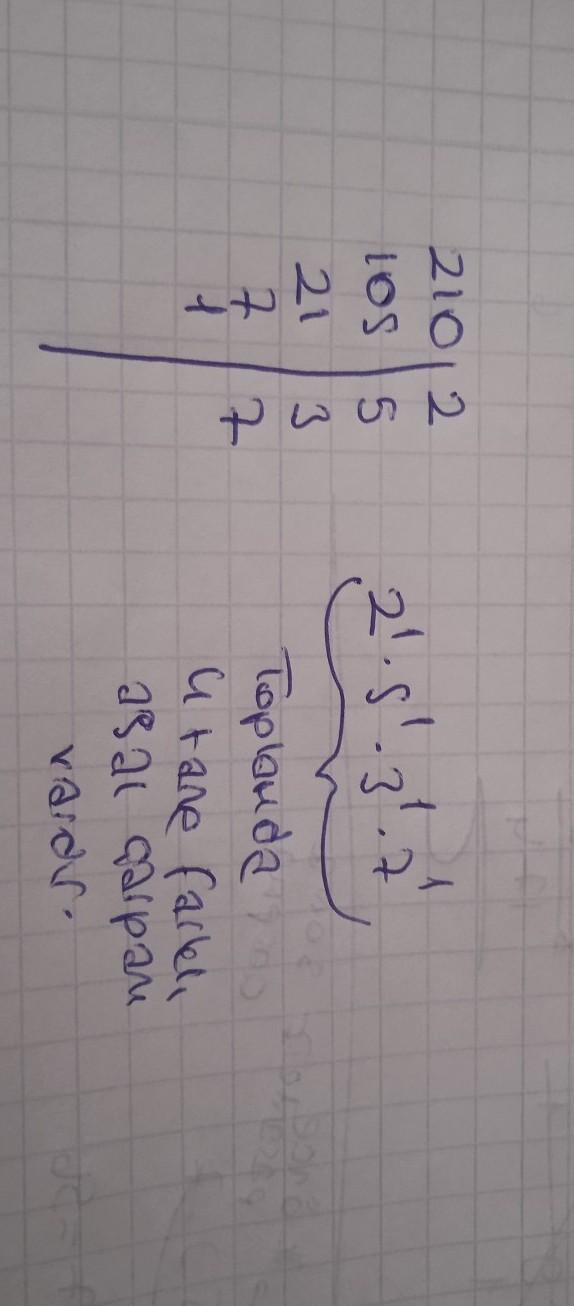 210 | 2
105 | 5
21 | 3
7 | 7
1
2¹ . 5¹ . 3¹ . 7¹
Toplamda
4 tane farklı
asal çarpan
vardır.